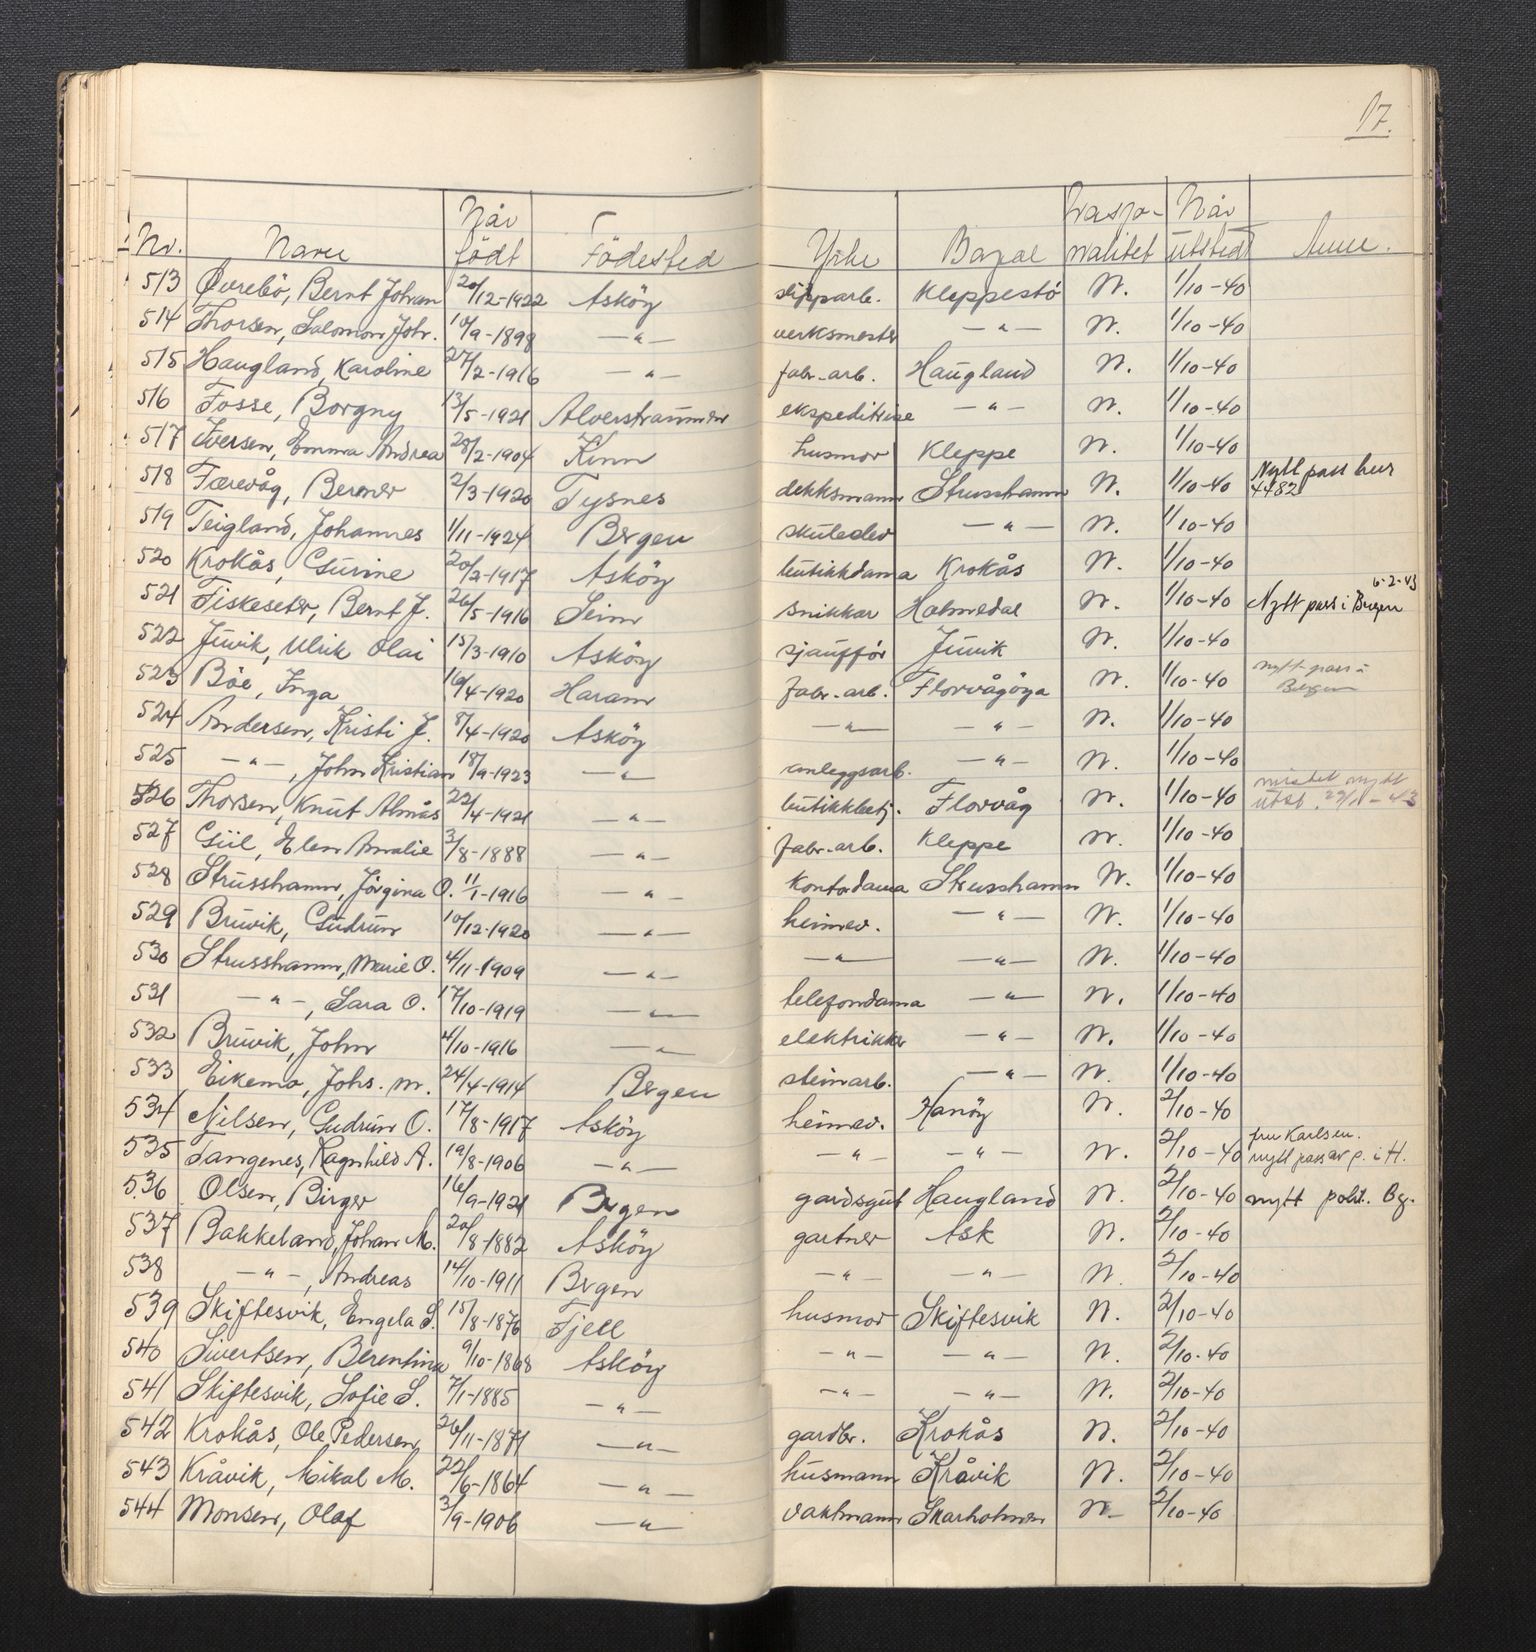 17.
Nr. Navn Når födt Födested Yrke Bopæl Nasjo-nalitet Når utstedt Anm.
513 Övrebö, Bernt Johan 20/12-1922 Asköy slipparb. Kleppestö N. 1/10-40
514 Thorsen, Salomon Joh. 10/9-1898 —"— verksmester —"— N. 1/10-40
515 Haugland, Karoline 27/2-1916 —"— fabr.-arb. Haugland N. 1/10-40
516 Fosse, Borgny 13/5-1921 Alverstraumen ekspeditrise —"— N. 1/10-40
517 Iversen, Emma Andrea 28/2-1904 Kinn husmor Kleppe N. 1/10-40
518 Færevåg, Berner 2/3-1920 Tysnes dekksmann Strusshamn N. 1/10-40 Nytt pass her 4482
519 Teigland, Johannes 1/11-1924 Bergen skuleelev —"— N. 1/10-40
520 Krokås, Gurine 20/2-1917 Asköy butikkdama Krokås N. 1/10-40
521 Fiskeseter, Bernt J. 26/5-1916 Seim snikkar Holmedal N. 1/10-40 Nytt pass i Bergen 6-2-43
522 Juvik, Ulrik Olai 15/3-1910 Asköy sjauffór Juvik N. 1/10-40
523 Böe, Inga 16/4-1920 Haram fabr.-arb. Florvågöya N. 1/10-40 nytt pass i Bergen
524 Andersen, Kristi J. 8/4-1920 Asköy —"— —"— N. 1/10-40
525 —"—, John Kristian 18/9-1923 —"— anleggsarb. —"— N. 1/10-40
526 Thorsen, Knut Almås 22/4-1921 —"— butikkbetj. Florvåg N. 1/10-40 mistet nytt utst. 29/11-43
527 Giil, Elen Amalie 3/8-1888 —"— fabr.-arb. Kleppe N. 1/10-40
528 Strusshamn, Jörgina O. 11/1-1916 —"— kontordama Strusshamn N. 1/10-40
529 Bruvik, Gudrun 10/12-1920 —"— heimev. —"— N. 1/10-40
530 Strusshamn, Marie O. 4/11-1909 —"— —"— —"— N. 1/10-40
531 —"—, Sara O. 17/10-1919 —"— telefondama —"— N. 1/10-40
532 Bruvik, John 4/10-1916 —"— elektrikker —"— N. 1/10-40
533 Eikemo, Johs. M. 24/4-1914 Bergen steinarb. —"— N. 1/10-40
534 Nilsen, Gudrun O. 17/8-1917 Asköy heimev. Hanöy N. 2/10-40
535 Tangenes, Ragnhild A. 19/8-1906 —"— —"— —"— N. 2/10-40 fru Karlsen. nytt pass av p. i H.
536 Olsen, Birger 16/9-1921 Bergen gardsgut Haugland N. 2/10-40 nytt polit. Bg.
537 Bakkeland, Johan M. 20/8-1882 Asköy gartner Ask N. 2/10-40
538 —"—, Andreas 14/10-1911 Bergen —"— —"— N. 2/10-40
539 Skiftesvik, Engela S. 15/8-1876 Fjell husmor Skiftesvik N. 2/10-40
540 Sivertsen, Berentina 9/10-1868 Asköy —"— —"— N. 2/10-40
541 Skiftesvik, Sofie S. 7/1-1885 —"— —"— —"— N. 2/10-40
542 Krokås, Ole Pedersen 26/11-1871 —"— gardbr. Krokås N. 2/10-40
543 Kråvik, Mikal M. 22/6-1864 —"— husmann Kråvik N. 2/10-40
544 Monsen, Olaf 3/9-1906 —"— vaktmann Skarholmen N. 2/10-40